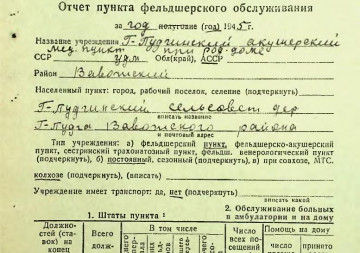 Отчет пункта фельдшерского обслуживания
за год полугодие (год) 1945 г.
Название учреждения Г-Пудгинский акушерский
мед. пункт при род. доме
ССР удм Обл(край), АССР
Район Вавожский
Населенный пункт: город, рабочий поселок, селение (подчеркнуть)
Г-Пудгинский сельсовет дер
вписать название
Г-Пудга Вавожского района
и почтовый адрес
Тип учреждения: а) фельдшерский пункт, фельдшерско-акушерский
пункт, сестринский трахоматозный пункт, фельдш. венерологический пункт
(подчеркнуть), б) постоянный, сезонный (подчеркнуть), в) при совхозе, МТС.
колхозе (подчеркнуть), (вписать)
Учреждение имеет транспорт: да, нет (подчеркнуть)
вписать какой
1. Штаты пункта ¹
2. Обслуживание больных
в амбулатории и на дому
Должно-
стей (ста-
вок) на
конец
Всего
долж-
В том числе
Число
всех по-
сещений
Помощь на дому
число
принято